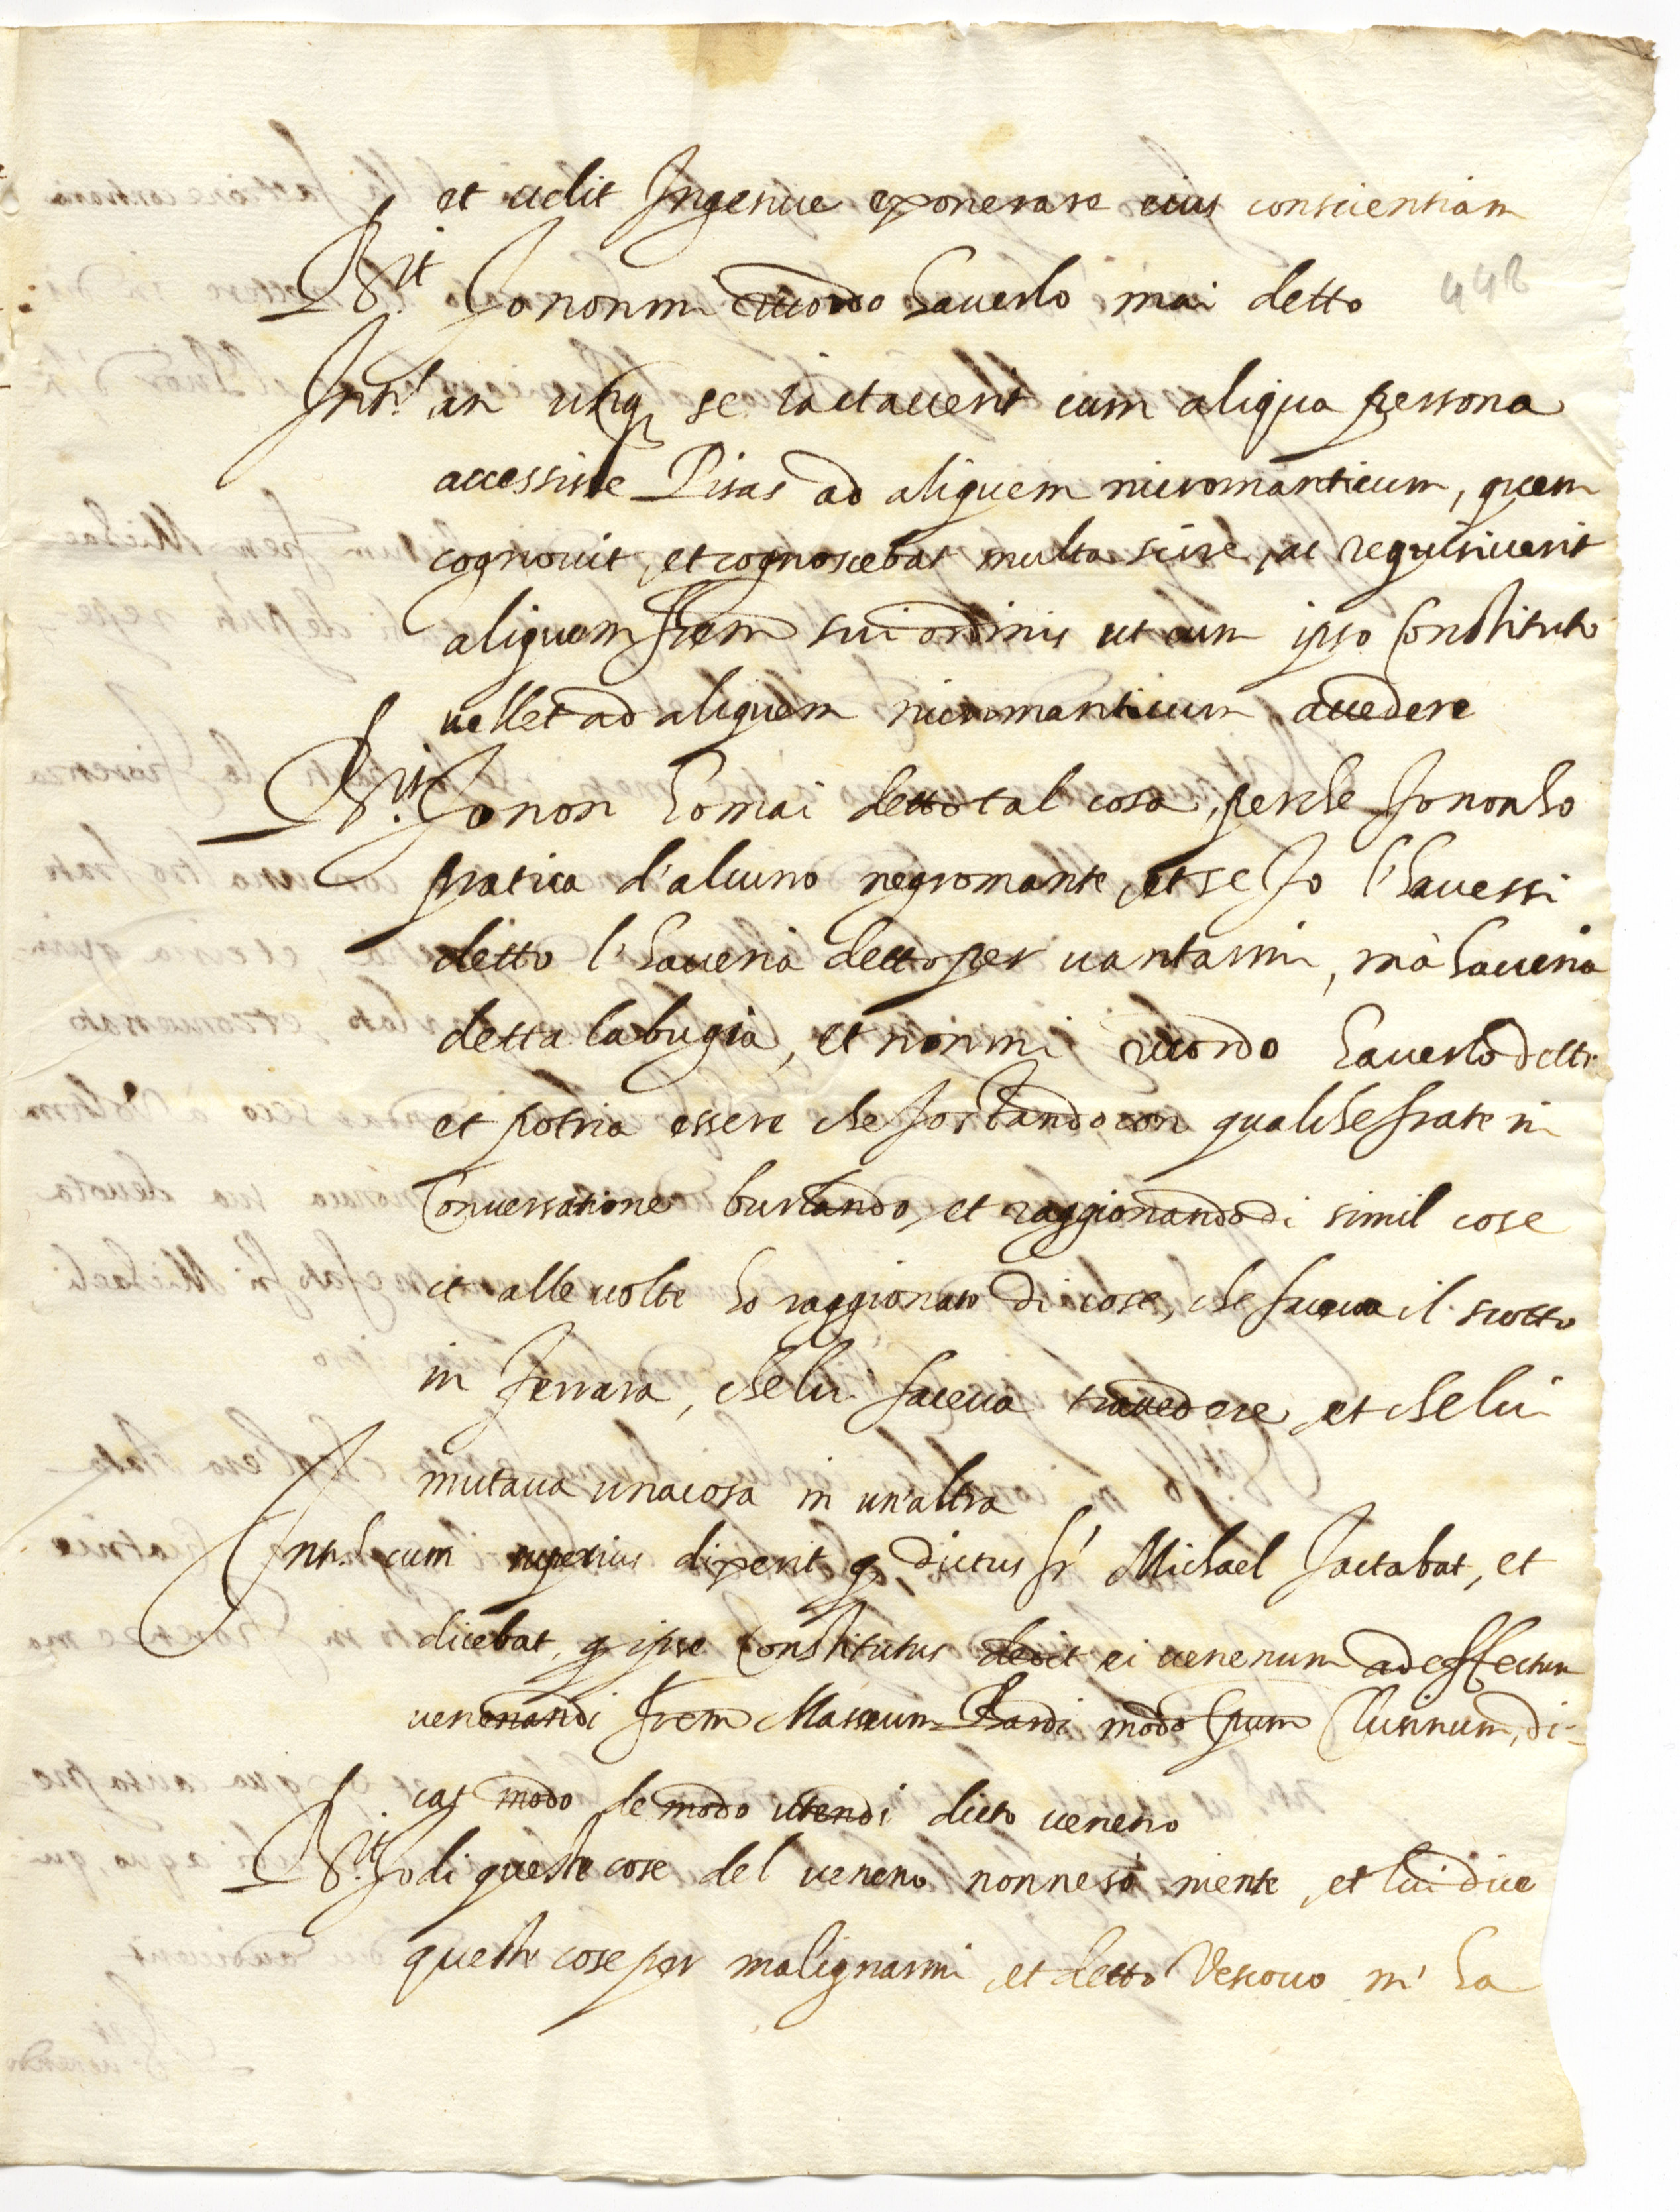 et uelit Ingenue exonerare eius conscientiam
R.it Io non mi ricordo hauerlo mai detto
448
Int.s an unq. se iactauerit cum aliqua persona
accessisse Pisas ad aliquem nicromanticum, quem
cognouit, et cognoscebat multa scire, ac requisiuerit
aliquem frem sui ordinis ut cum ipso Constituto
uellet ad aliquem nicromanticum accedere
R.it Io non ho mai detto tal cosa, perche Io non ho
pratica d'alcuno negromante, et se Io l'hauessi
detto l'haueria detto per uantarmi, mà haueria
detta la bugia, et non mi ricordo hauerlo detto
et potria essere che Io stando con qualche frate in
Conuersatione burlando, et raggionando di simil cose
et alle uolte ho raggionato di cose, che faceua il scotto
in Ferrara, che lui faceua trauedere, et che lui
mutaua una cosa in un'altra
Int.s cum superius dixerit q. dictus fr' Michael Iactabat, et
dicebat, q. ipse Constitutus dedit ei uenenum ad effectum
uenenandi frem Masseum Bardi modo Epum Clusinum, di-
cat modo de modo utendi dicto ueneno
R.it Io di queste cose del ueneno non ne sò niente, et lui dice
queste cose per malignarmi et detto Vescouo m' ha